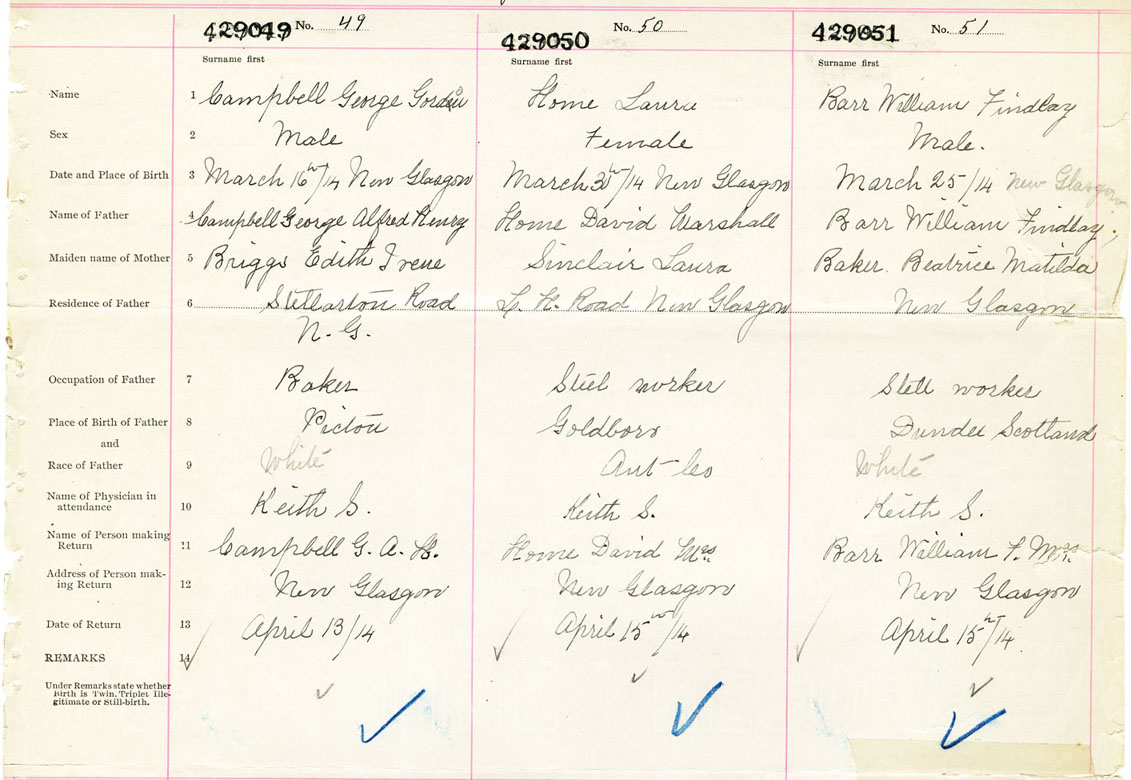 429049 No. 49 429050 No. 50 429051 No. 51
Surname first Surname first Surname first
Name 1 Campbell George Gordon Home Laura Barr William Findlay
Sex 2 Male Female Male.
Date and Place of Birth 3 March 16th/14 New Glasgow March 3th/14 New Glasgow March 25/14 New Glasgow
Name of Father 4 Campbell George Alfred Henry Home David Marshall Barr William Findlay,
Maiden name of Mother 5 Briggs Edith Irene Sinclair Laura Baker. Beatrice Matilda
Residence of Father 6 Stellarton Road Road New Glasgow New Glasgow
N. G.
Occupation of Father 7 Baker Steel worker Stell worker
Place of Birth of Father 8 Pictou Goldboro Dundee Scotland
and
Race of Father 9 White White
Name of Physician in
attendance 10 Keith S. Keith S. Keith S.
Name of Person making
Return 11 Campbell G. A. H. Home David Mrs. Barr William F. Mrs.
Address of Person mak-
ing Return 12 New Glasgow New Glasgow New Glasgow
Date of Return 13 April 13/14 April 15th/14 April 15th/14
REMARKS 14
Under Remarks state whether
Birth is Twin, Triplet Ille-
gitimate or Still-birth.